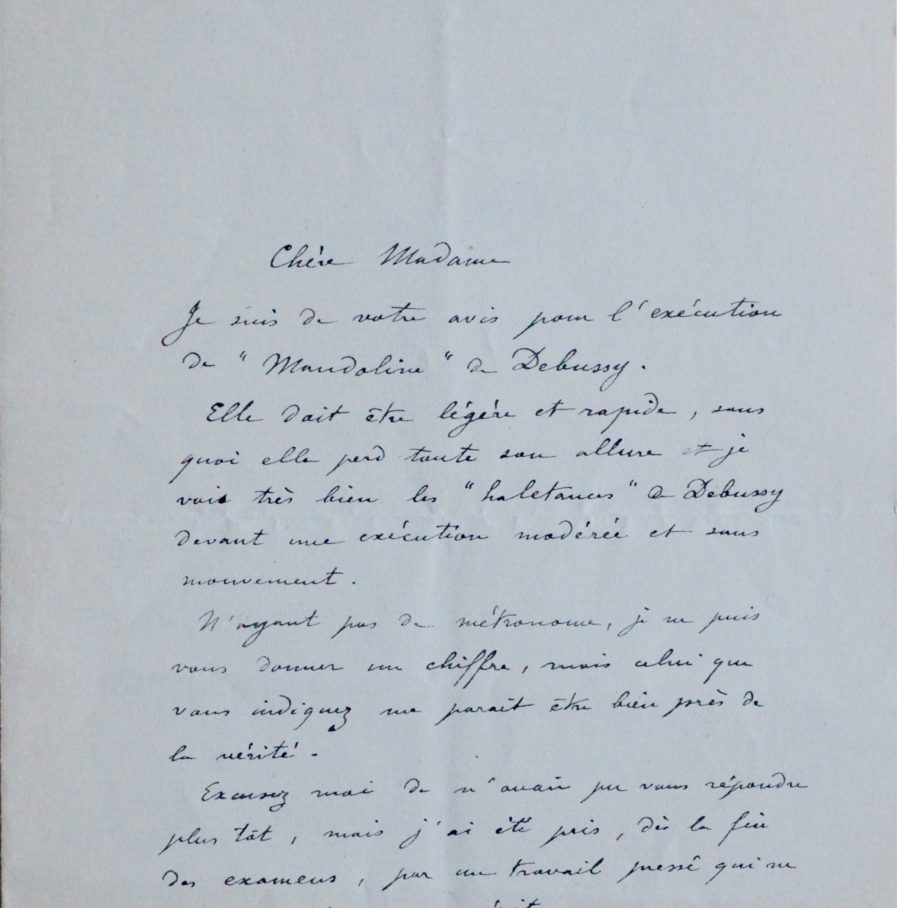 Chère Madame
Je suis de votre avis pour l'exécution
de "Mandoline" de Debussy.
Elle doit être légère et rapide, sans
quoi elle perd toute son allure et je
vois très bien les "haletances" de Debussy
devant une exécution modérée et sans
mouvement.
N'ayant pas de métronome, je ne puis
vous donner un chiffre, mais celui que
vous indiquez me parait être bien près de
la vérité.
Excusez moi de n'avoir pu vous répondre
plus tôt, mais j'ai été pris, dès la fin
des examens, par un travail pressé qui ne